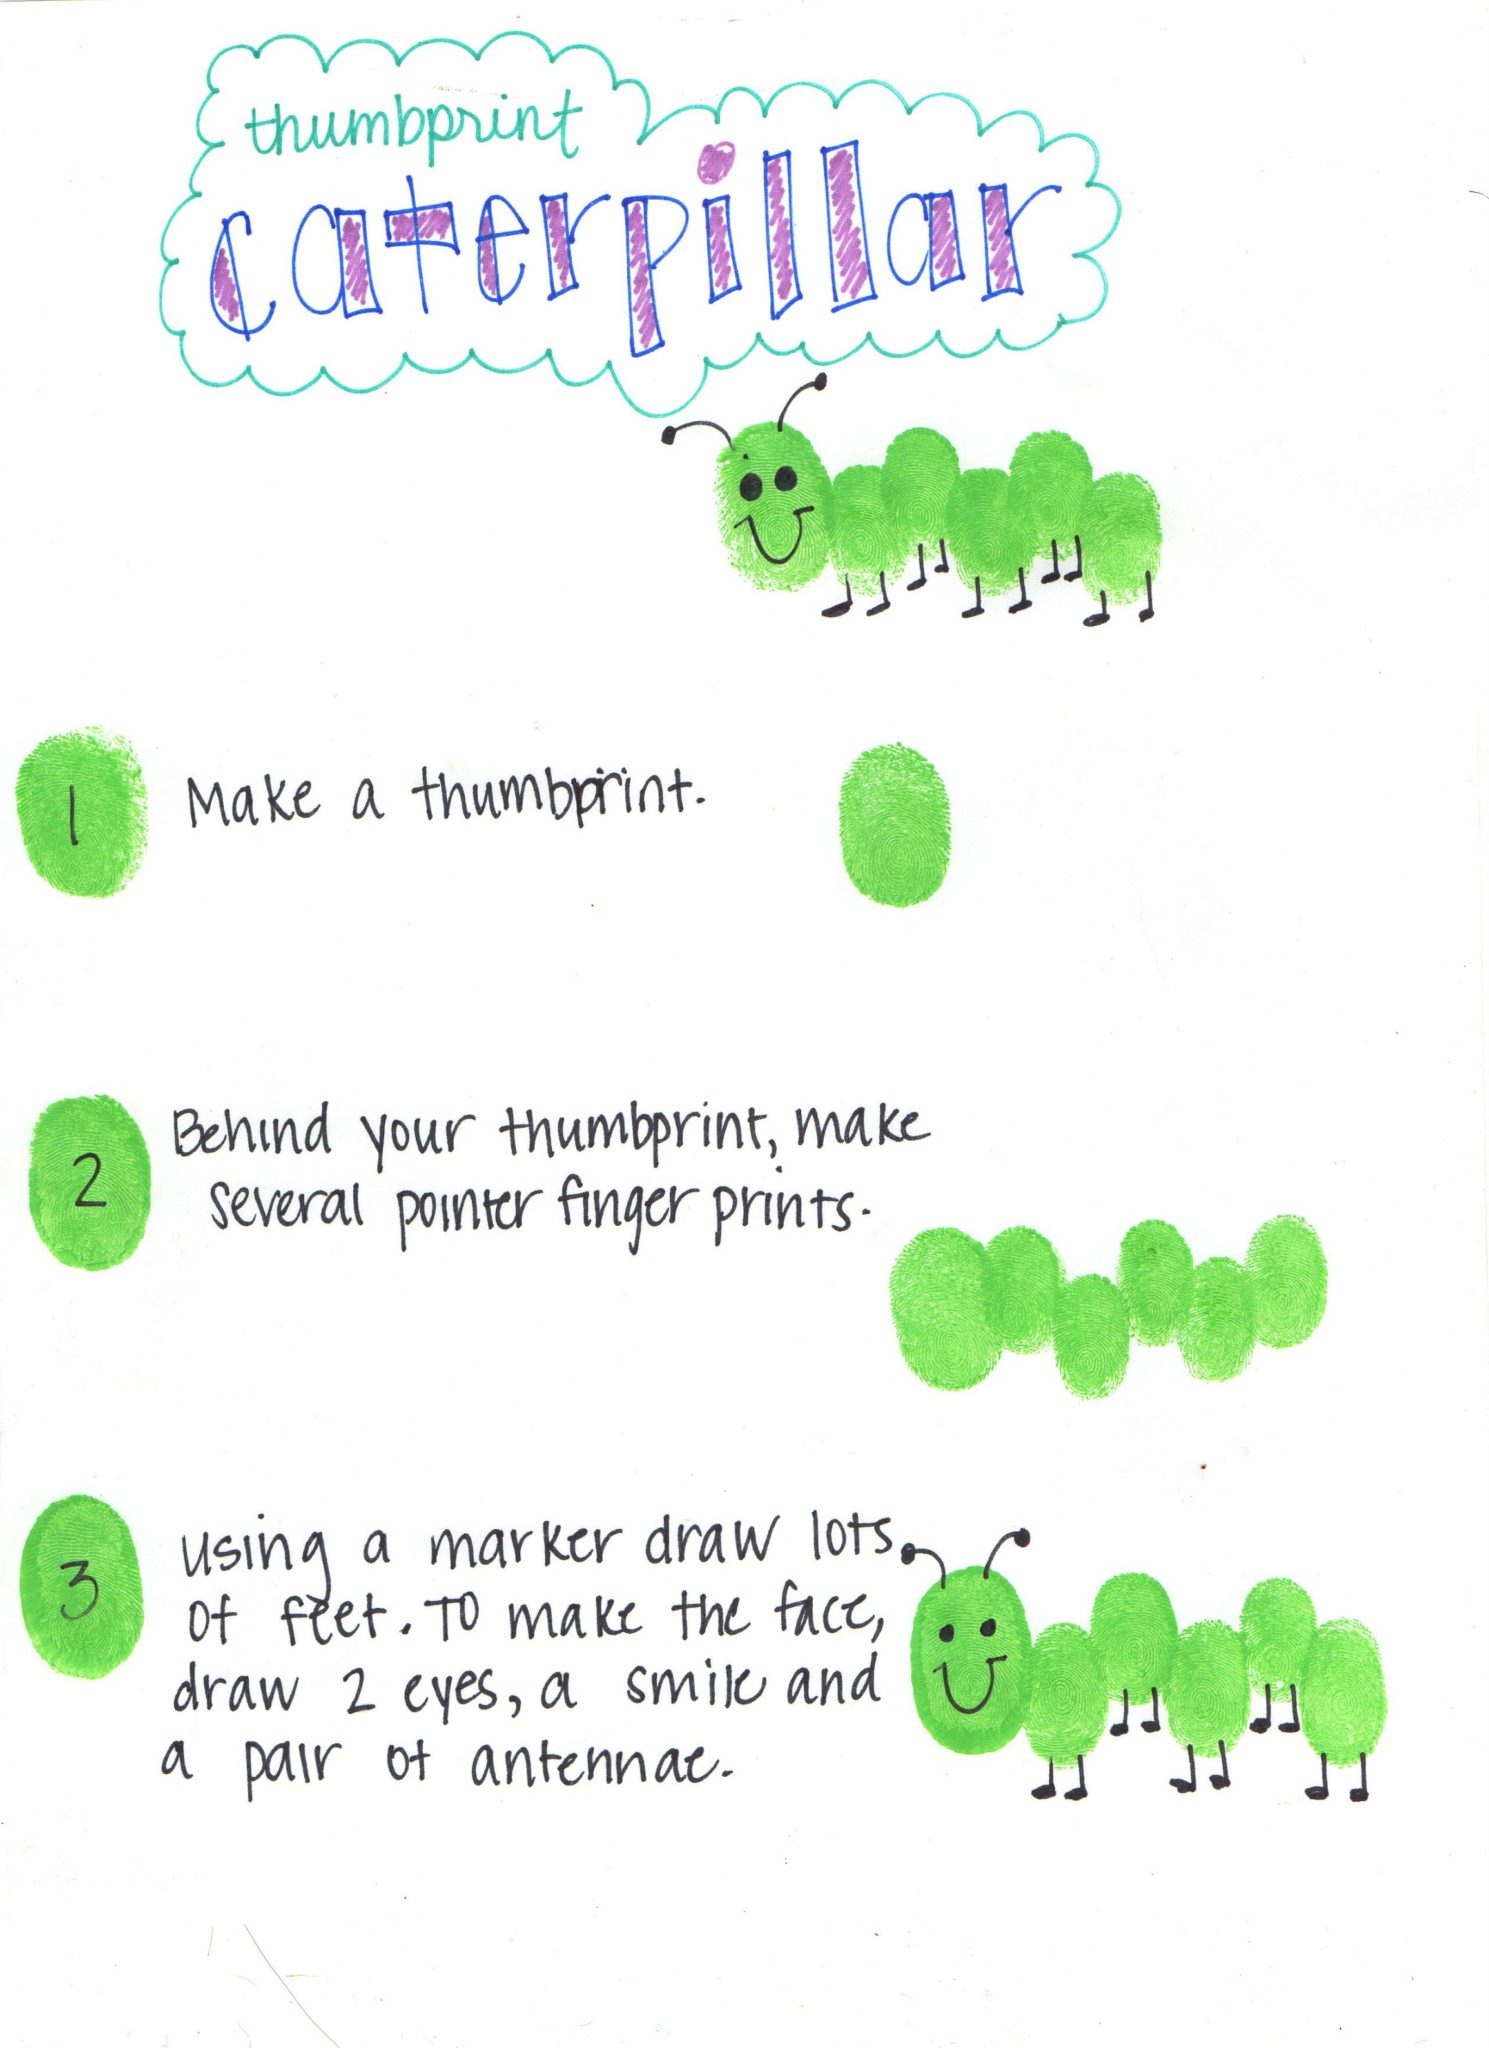 thumbprint
caterpillar
1 Make a thumbprint.
2 Behind your thumbprint, make
several pointer finger prints.
3 using a marker draw lots
of feet. To make the face,
draw 2 eyes, a smile and
a pair of antennae.